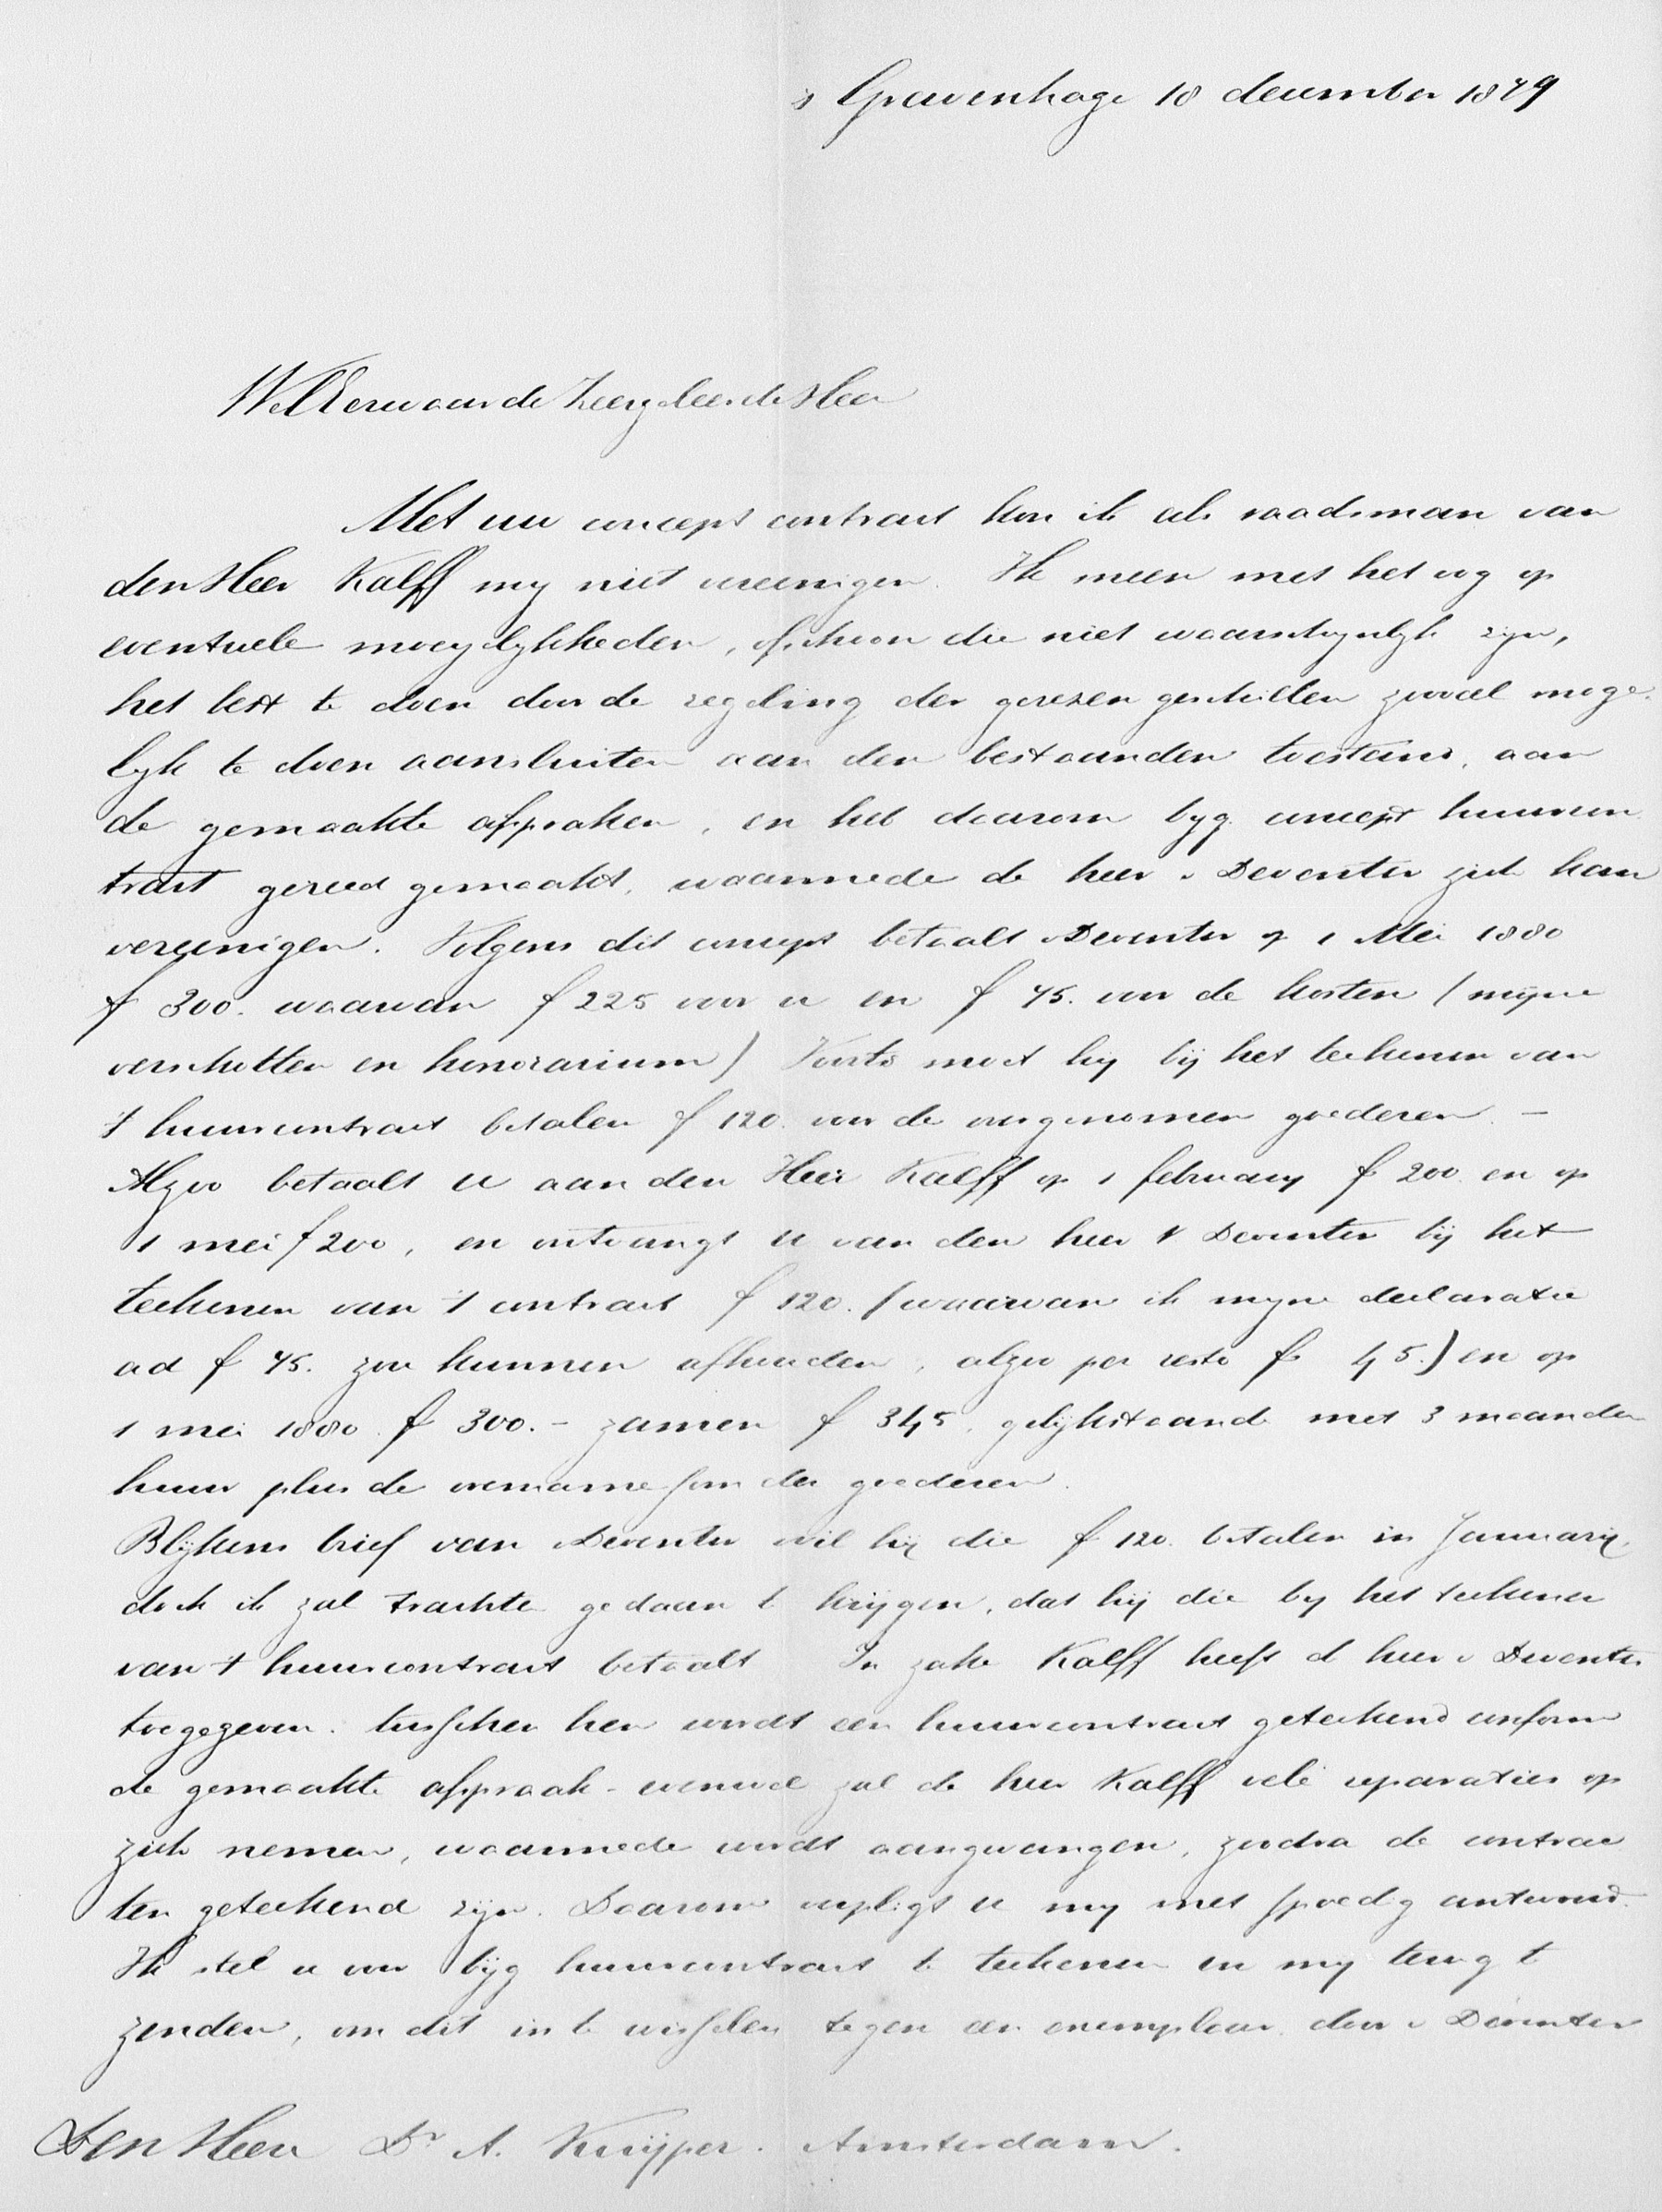 s Gravenhage 18 december 1879
WelEerwaarde Zeergeleerde Heer
Met uw concept contract kon ik als raadsman van
den Heer Kalff my niet vereenigen. Ik meen met het oog op
eventuele moeylykheden, ofschoon die niet waarschynlyk zyn,
het best te doen door de regeling der gerezen geschillen zooveel moge
lyk te doen aansluiten aan den bestaanden toestand, aan
de gemaakte afspraken, en heb daarom byg. concept huurcon
tract gereed gemaakt, waarmede de heer v Deventer zich kan
vereenigen. Volgens dit concept betaalt Deventer op 1 Mei 1880
f 300. waarvan f 225 voor u en f 75. voor de kosten (myne
verschotten en honorarium) Voorts moet hy bij het teekenen van
't huurcontract betalen f 120. voor de overgenomen goederen. –
Alzoo betaalt u aan den Heer Kalff op 1 february f 200. en op
1 mei f 200, en ontvangt u van den heer v Deventer bij het
teekenen van 't contract f 120. (waarvan ik myne declaratie
ad f 75. zou kunnen afhouden, alzoo per resto f 45.) en op
1 mei 1880 f 300. – zamen f 345, gelijkstaande met 3 maanden
huur plus de overname som der goederen.
Blijkens brief van Deventer wil hij die f 120. betalen in Januarij,
doch ik zal trachten gedaan te krijgen, dat hij die by het teekenen
van 't huurcontract betaalt In zake Kalff heeft de heer v Deventer
toegegeven. tusschen hen wordt een huurcontract geteekend conform
de gemaakte afspraak – evenwel zal de heer Kalff vele reparaties op
zich nemen, waarmede wordt aangevangen, zoodra de contrac
ten geteekend zijn. Daarom verpligt u my met spoedig antwoord.
Ik stel u voor bijg huurcontract te teekenen en my terug te
zenden, om dit in te wisselen tegen een exemplaar door v Deventer
Den Heer Dr A. Kuijper. Amsterdam.